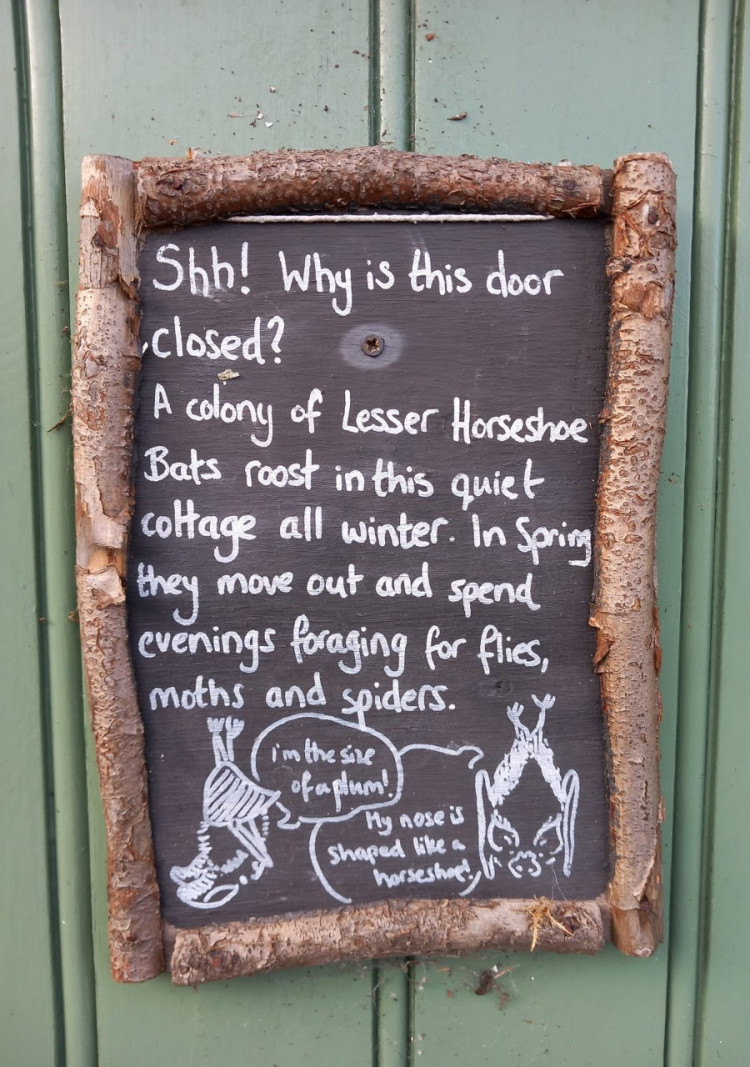 Shh! Why is this door
closed?
A colony of Lesser Horseshoe
Bats roost in this quiet
cottage all winter. In Spring
they move out and spend
evenings foraging for flies,
moths and spiders.
i'm the size
of a plum!
My nose is
shaped like a
horseshoe!